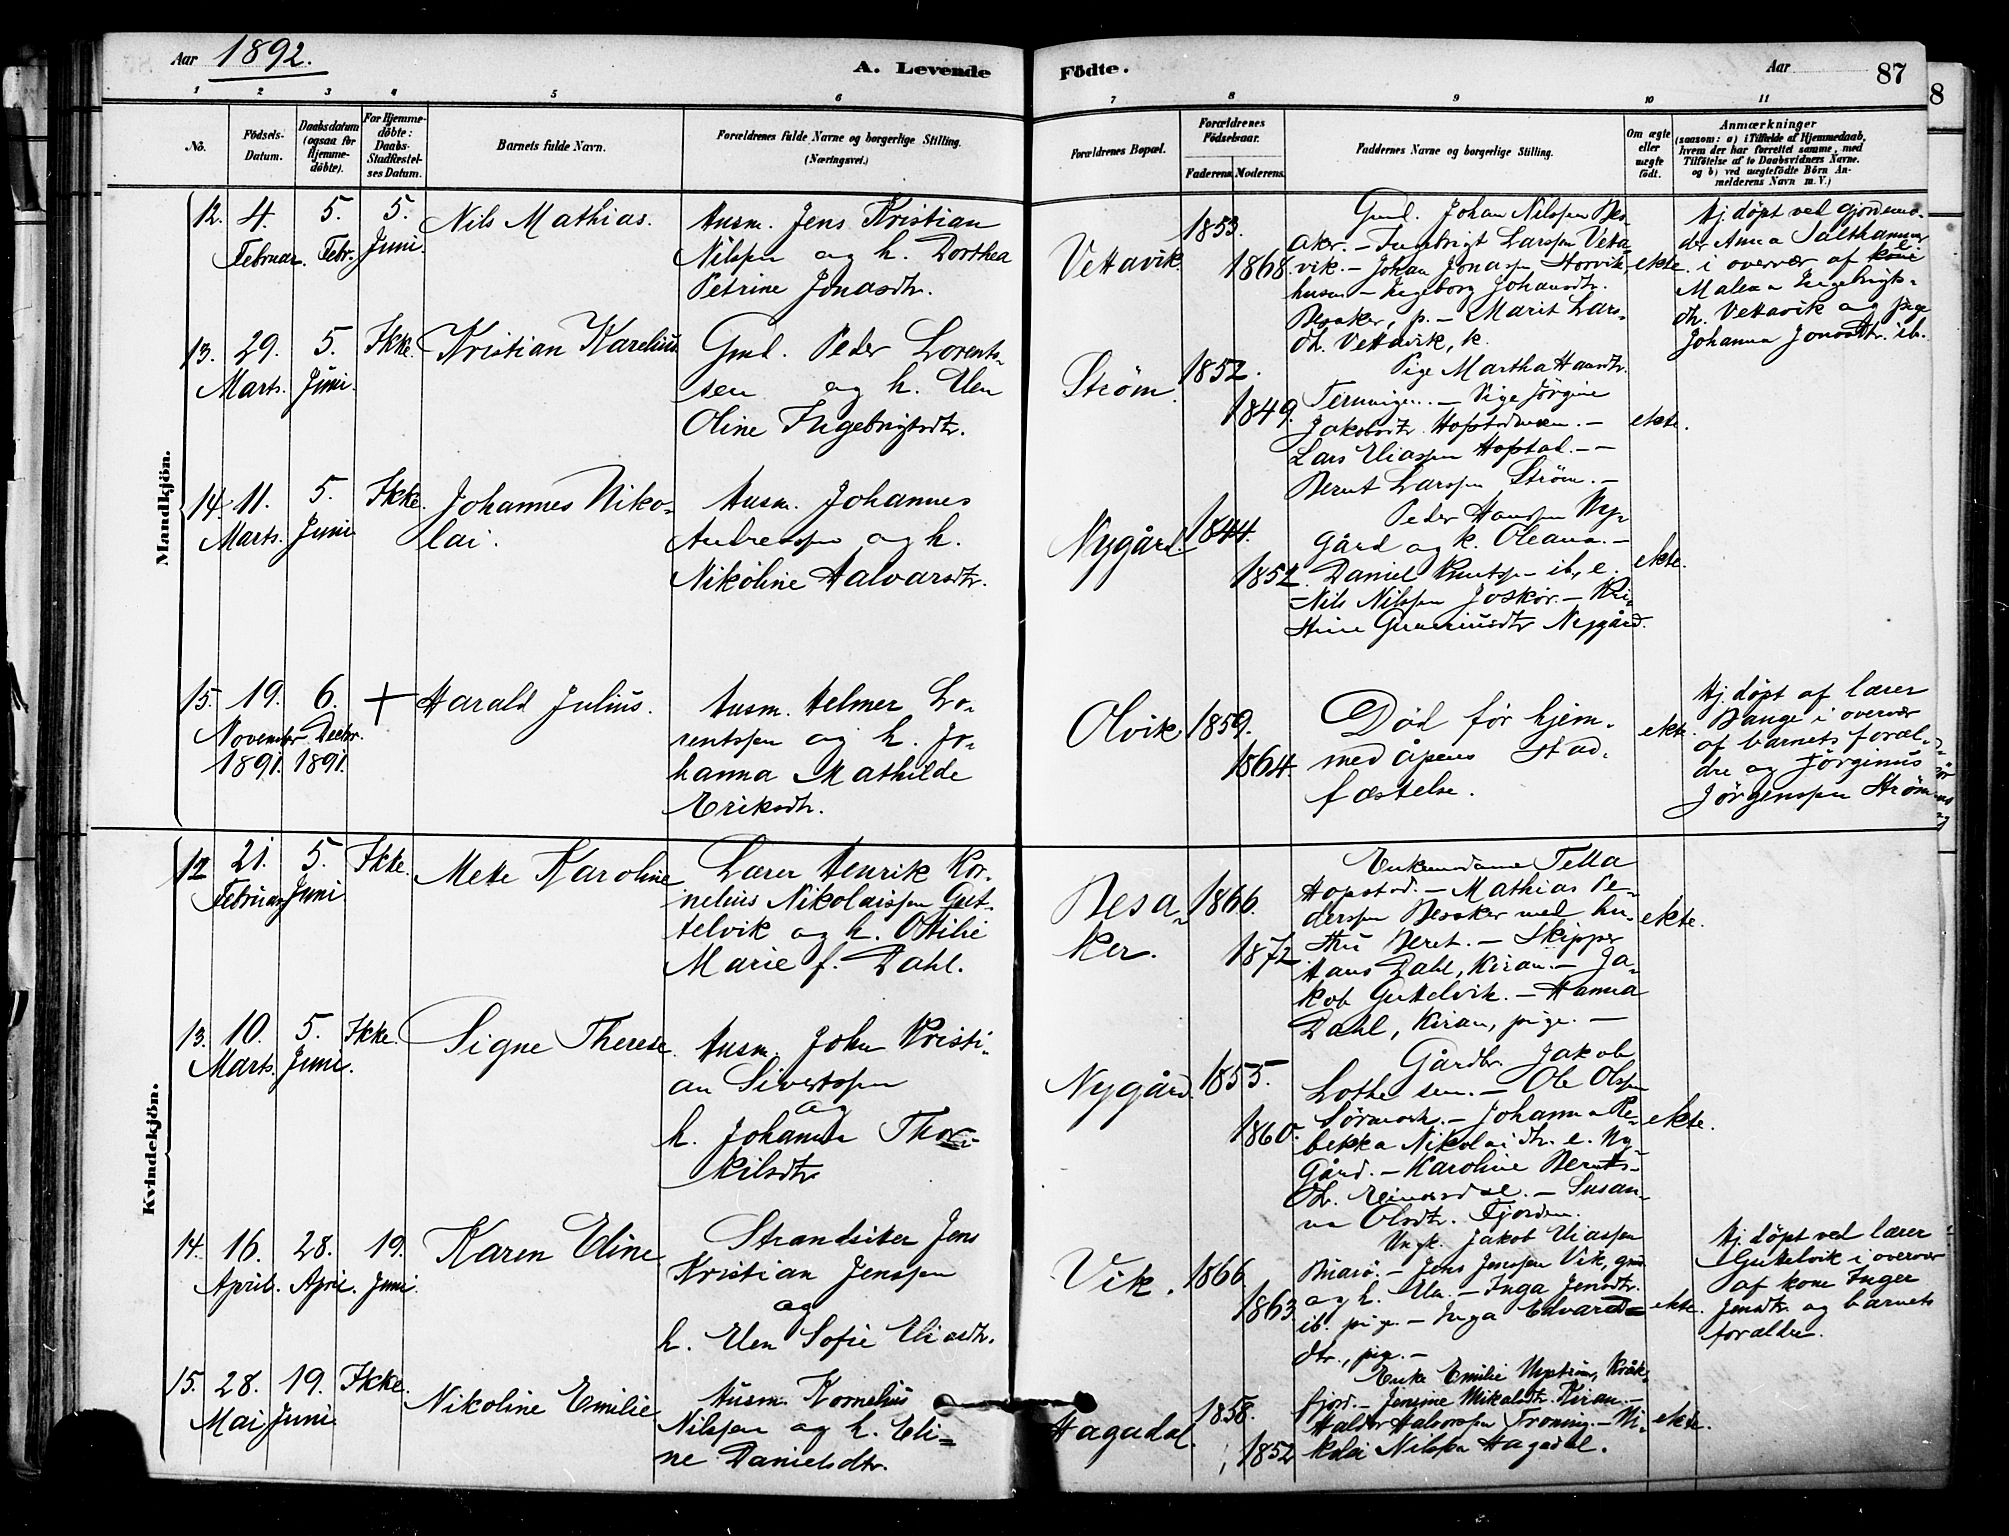 Aar 1892.
A. Levende
Födte.
Aar
87
8
1 2 3 4 5 6 7 8 9 10 11
No.
Födsels-
Datum.
Daabsdatum
(ogsaa for
Hjemme-
döbte).
For Hjemme-
döbte:
Daabs-
Stadfæstel-
ses Datum.
Barnets fulde Navn.
Forældrenes fulde Navne og borgerlige Stilling.
(Næringsvei.)
Forældrenes Bopæl.
Forældrenes
Födselsaar.
Faderens. Moderens.
Faddernes Navne og borgerlige Stilling.
Om ægte
eller
uægte
födt.
Anmærkninger
(saasom: a) i Tilfælde af Hjemmedaab,
hvem der har forrettet samme, med
Tilföielse af to Daabsvidners Navne.
og b) ved uægtefödte Börn An-
melderens Navn m. V.)
Mandkjön.
12. 4.
Februar.
5.
Febr.
5.
Juni.
Nils Mathias.
Husm. Jens Kristian
Nilssen og h. Dorthea
Petrine Jonasdtr.
Vettavik.
1853.
1868.
Gmd. Johan Nilssen Bes-
aker. – Ingebrigt Larssen Vetta-
vik. – Johan Jonassen Horvik-
husen – Ingeborg Johansdtr.
Besaker, p. – Marit Lars-
dtr. Vettavik, k.
ekte.
Hj. døpt ved gjordemo-
der Anna Salthammer
i overvær af kone
Malena Ingebrigts-
dtr. Vettavik og pige
Johanna Jonasdtr. ib.
13. 29.
Marts.
5.
Juni.
Ikke.
Kristian Karelius
Gmd. Peder Lorents-
sen og h. Elen
Oline Ingebrigtsdtr.
Strøm.
1852.
1849.
Pige Martha Hansdtr.
– Pige Jørgine
Jakobsdtr. –
Lars Eliassen Hopstad. –
Bernt Larssen Strøm. –
ekte.
14. 11.
Marts.
5.
Juni
Ikke.
Johannes Niko-
lai.
Husm. Johannes
Andreassen og h.
Nikoline Halvarsdtr.
Nygård.
1844.
1852.
Peder Hanssen Ny-
gård og k. Oleana. –
Daniel Knutss. – ib, e.
– Nils Nilssen Joskår. – Kri-
stine Gunneriusdtr Nygård.
ekte.
15. 19.
November
1891.
6.
Decbr.
1891.
+
Harald Julius.
Husm. Helmer Lo-
rentssen og h. Jo-
hanna Mathilde
Eriksdtr.
Olvik
1859.
1864.
Död før hjem-
medåpens stad-
fæstelse.
ekte.
Hj døpt af lærer
Bange i overvær
af barnets foræl-
dre og Jørginus
Jörgenssen Strøm
Kvindekjön.
12 21.
Februar
5.
Juni
Ikke.
Mette Karoline
Lærer Henrik Kor-
nelius Nikolaissen Gut-
telvik og h. Ottilie
Marie f. Dahl.
Besa-
ker.
1866.
1872.
Enkemadame Tella
Hopstad. – Mathias Pe-
derssen Besaker med hu-
stru Beret. – Skipper
Hans Dahl, Kiran. – Ja-
kob Guttelvik. – Hanna
Dahl, Kiran, pige. –
ekte.
13. 10.
Marts.
5.
Juni.
Ikke.
Signe Therese.
Husm. John Kristi-
an Sivertssen
og
h. Johanna Thor-
kilsdtr
Nygård.
1855.
1860.
Gårdbr. Jakob
Lothe sen. – Ole Olssen
Sørmark. – Johanna Re-
bekka Nikolaidtr. e. Ny-
gård. – Karoline Bernts-
dtr. – Susan-
na Olsdtr. Fjorden.
ekte.
14. 16.
April.
28.
April.
19.
Juni.
Karen Eline
Strandsitter Jens
Kristian Jenssen
og
h. Elen Sofie Eliasdtr.
Vik.
1866
1863.
Ungk. Jakob Eliassen
– Jens Jenssen Vik, gmd.
og h. Elen. – Inga Jensdtr.
ib. pige – Inga Edvards-
dtr., pige. –
ekte.
Hj. døpt ved lærer
Guttelvik i overvær
af kone Inger
Jensdtr. og barnets
forældre.
15. 28.
Mai
19.
Juni
Ikke.
Nikoline Emilie
Husm. Kornelius
Nilssen og h. Eli-
ne Danielsdtr.
Hagadal.
1858.
1852
Enke Emilie Nystrøm, Kråk-
fjord. – Jensine Mikalsdtr. Kiran. –
Haldor Halvorssen Troning. – Ni-
kolai Nilssen Hagadal.
ekte.